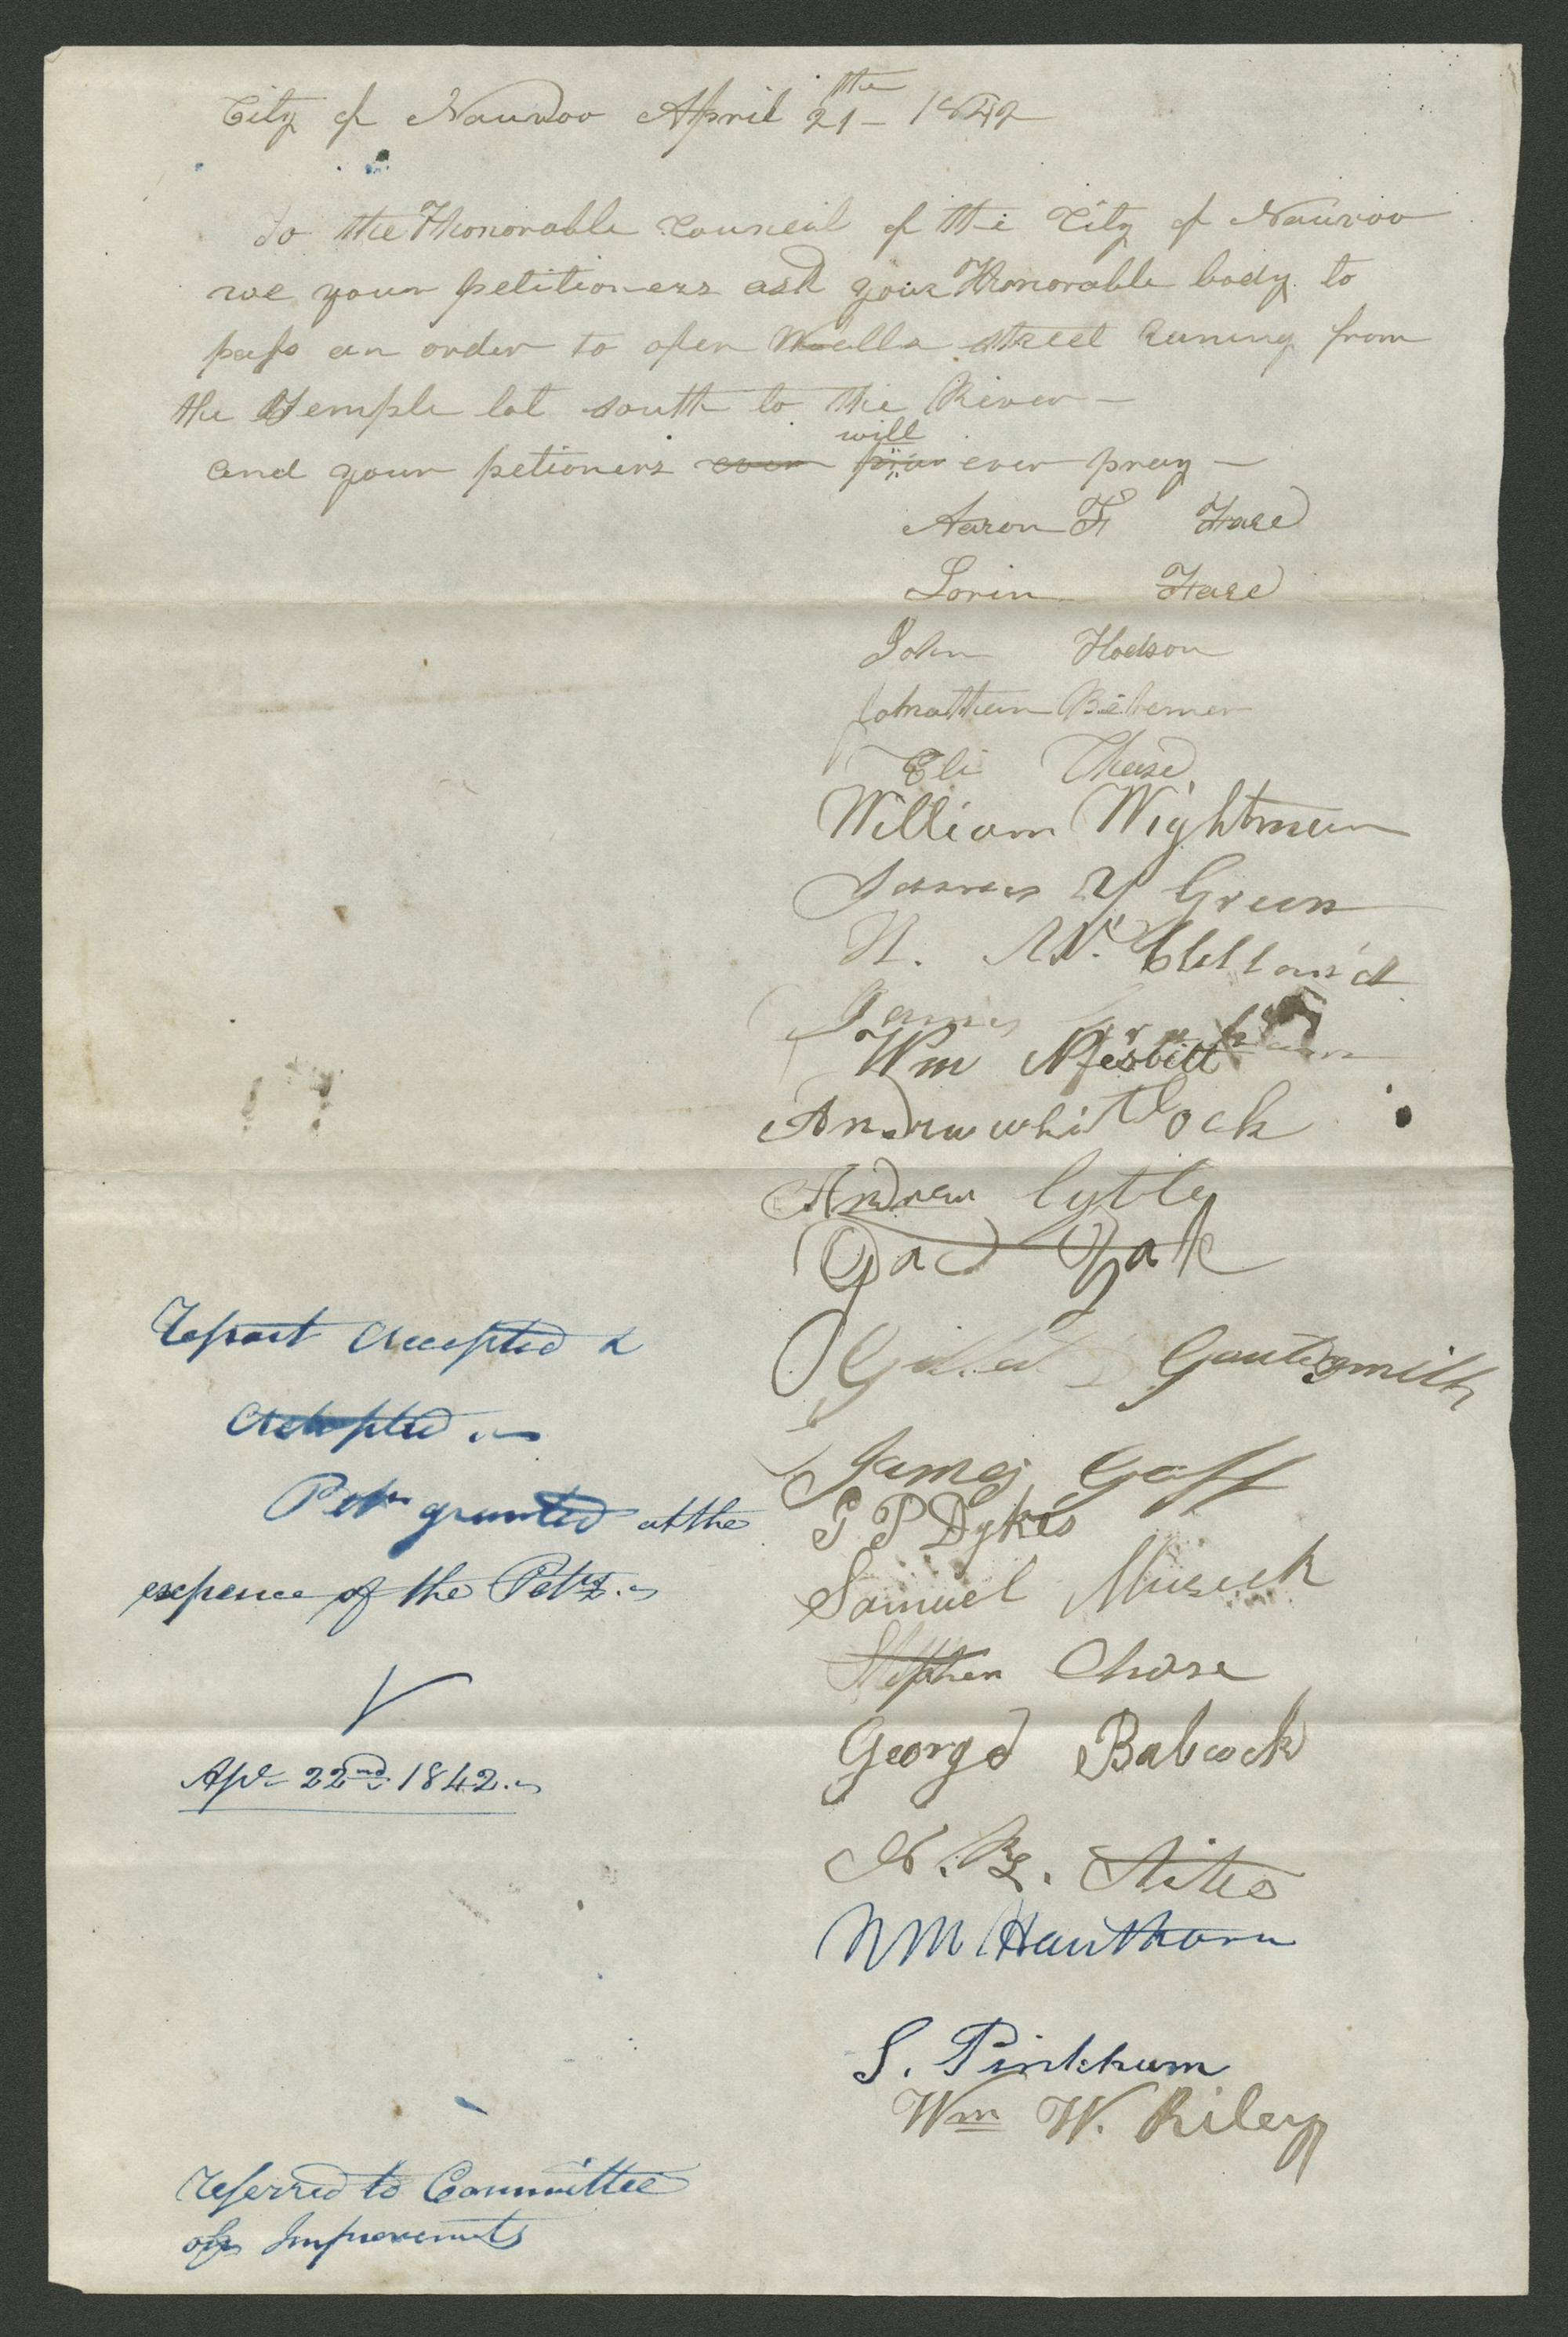 City of Nauvoo April 21the 1842
To the Honorable Council of the City of Nauvoo
we your petitioners ask your Honorable body to
pass an order to open Wells street runing from
the Temple lot south to the River—
and your petioners ever will ever pray—
Aaron F
Lorin
John Hodson
Eli Chase
William Wightman
James Y Green
James Graham
Wm Nesbitt
Andrew whitlock
Andrew Lytle
Gad Yale
Gillet Gautsmith
James Goff
G P Dykes
Samuel Musick
Stephen Chase
George Babcock
Wm Hawthorn
S. Pinkham
Wm W. Riley
Report Accepted &
Accepted.
Petn granted at the
expence of the Petrs.
Apr 22nd 1842.
referred to Committee
of Improvemts